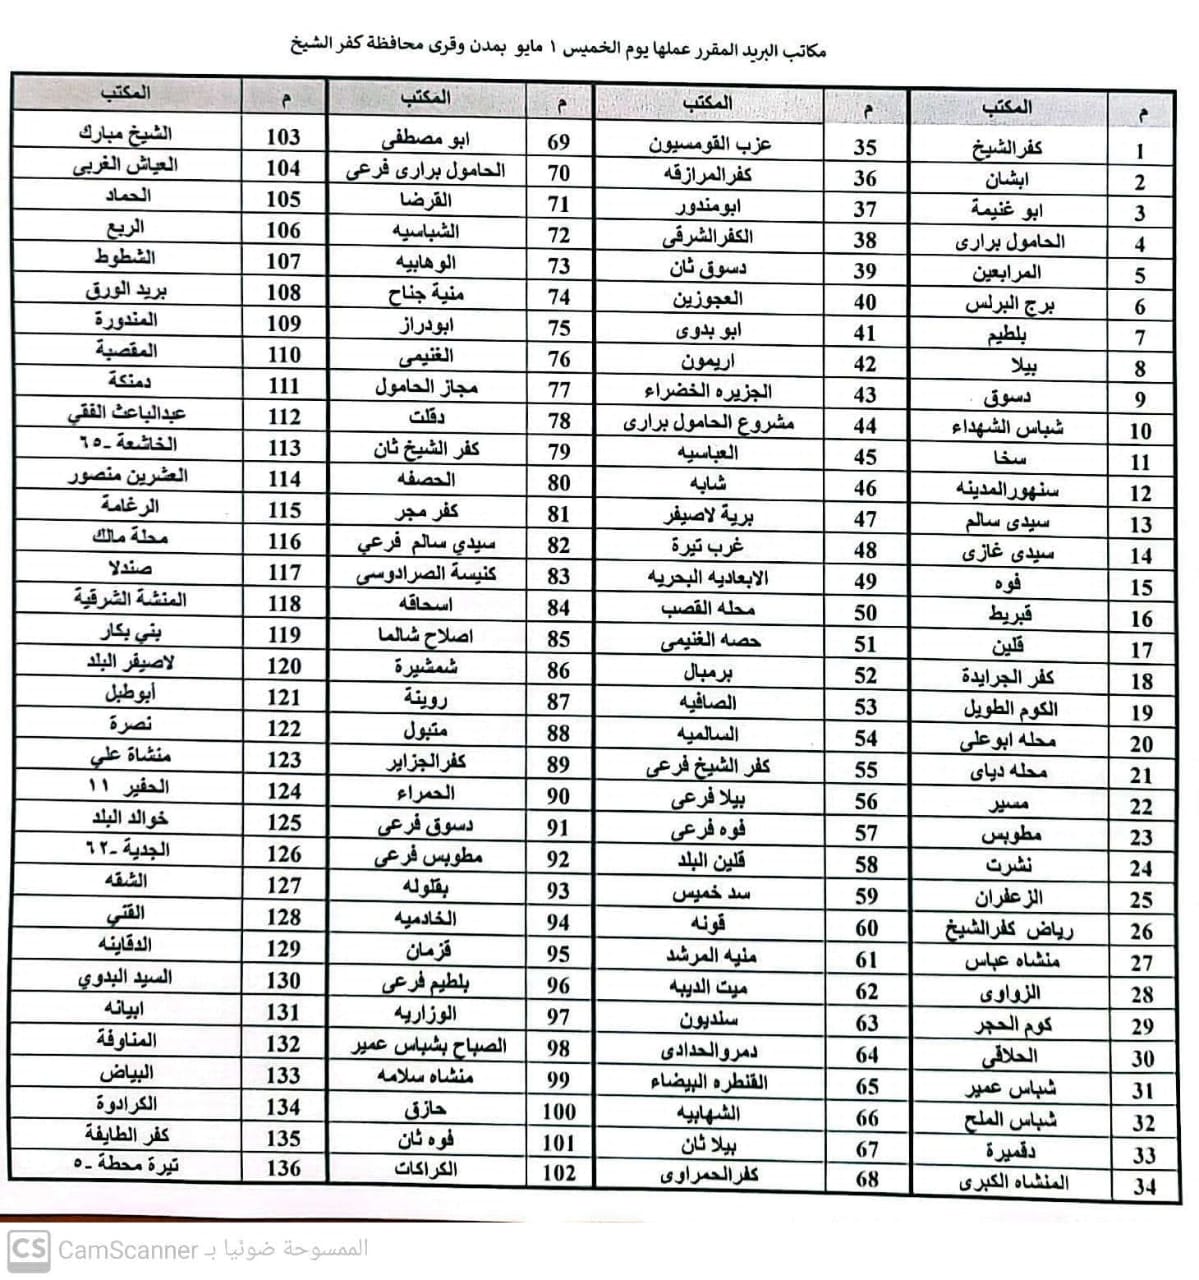 مكاتب البريد المقرر عملها يوم الخميس ١ مايو بمدن وقرى محافظة كفر الشيخ
م المكتب م المكتب م المكتب م المكتب
1 كفرالشيخ 35 عزب القومسيون 69 ابو مصطفى 103 الشيخ مبارك
2 ابشان 36 كفرالمرازقه 70 الحامول برارى فرعى 104 العياش الغربى
3 ابو غنيمة 37 ابومندور 71 القرضا 105 الحماد
4 الحامول برارى 38 الكفرالشرقى 72 الشباسيه 106 الربع
5 المرابعين 39 دسوق ثان 73 الوهابيه 107 الشطوط
6 برج البرلس 40 العجوزين 74 منية جناح 108 بريد الورق
7 بلطيم 41 ابو بدوى 75 ابودراز 109 المندورة
8 بيلا 42 اريمون 76 الغنيمى 110 المقصبة
9 دسوق 43 الجزيره الخضراء 77 مجاز الحامول 111 دمنكة
10 شباس الشهداء 44 مشروع الحامول برارى 78 دقلت 112 عبدالباعث الفقي
11 سخا 45 العباسيه 79 كفر الشيخ ثان 113 الخاشعة -٦٥
12 سنهورالمدينه 46 شابه 80 الحصفه 114 العشرين منصور
13 سيدى سالم 47 برية لاصيفر 81 كفر مجر 115 الرغامة
14 سيدى غازى 48 غرب تيرة 82 سيدي سالم فرعي 116 محلة مالك
15 فوه 49 الابعاديه البحريه 83 كنيسة الصرادوسي 117 صندلا
16 قبريط 50 محله القصب 84 اسحاقه 118 المنشة الشرقية
17 قلين 51 حصه الغنيمى 85 اصلاح شالما 119 بني بكار
18 كفر الجرايدة 52 برمبال 86 شمشيرة 120 لاصيفر البلد
19 الكوم الطويل 53 الصافيه 87 روينة 121 أبوطبل
20 محله ابوعلى 54 السالميه 88 متبول 122 نصرة
21 محله دياى 55 كفر الشيخ فرعى 89 كفرالجزاير 123 منشاة علي
22 مسير 56 بيلا فرعى 90 الحمراء 124 الحفير ١١
23 مطوبس 57 فوه فرعى 91 دسوق فرعى 125 خوالد البلد
24 نشرت 58 قلين البلد 92 مطوبس فرعى 126 الجدية -٦٢
25 الزعفران 59 سد خميس 93 بقلوله 127 الشقه
26 رياض كفرالشيخ 60 قونه 94 الخادميه 128 القني
27 منشاه عباس 61 منيه المرشد 95 قزمان 129 الدقاينه
28 الزواوى 62 ميت الديبه 96 بلطيم فرعى 130 السيد البدوي
29 كوم الحجر 63 سنديون 97 الوزاريه 131 ابيانه
30 الحلافي 64 دمروالحدادى 98 الصباح بشباس عمير 132 المناوفة
31 شباس عمير 65 القنطره البيضاء 99 منشاه سلامه 133 البياض
32 شباس الملح 66 الشهابيه 100 حازق 134 الكرادوة
33 دقميرة 67 بيلا ثان 101 فوه ثان 135 كفر الطايفة
34 المنشاه الكبرى 68 كفرالحمراوى 102 الكراكات 136 تيرة محطة -٥
CS CamScanner الممسوحة ضوئيا بـ